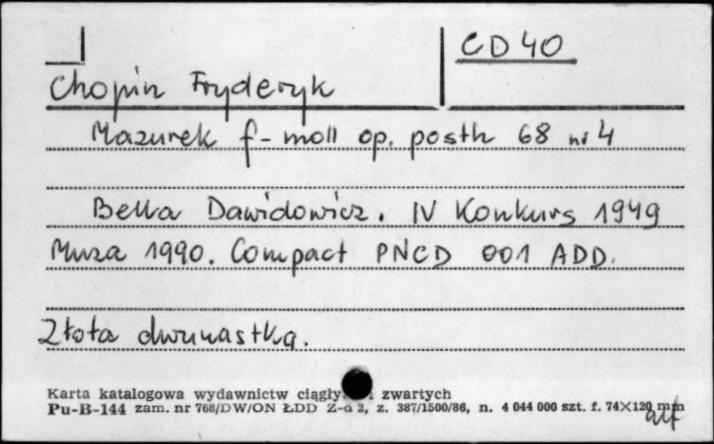 CD 40
Chopin Fryderyk
Mazurek f-moll op. posth 68 nr 4
Bella Dawidowicz. IV Konkurs 1949
Muza 1990. Compact PNCD 001 ADD.
Złota dwunastka.
Karta katalogowa wydawnictw ciągły zwartych
Pu-B-144 zam. nr 768/DW/ON ŁDD Z-d 2, z. 387/1500/86, n. 4 044 000 szt. f. 74×120 mm